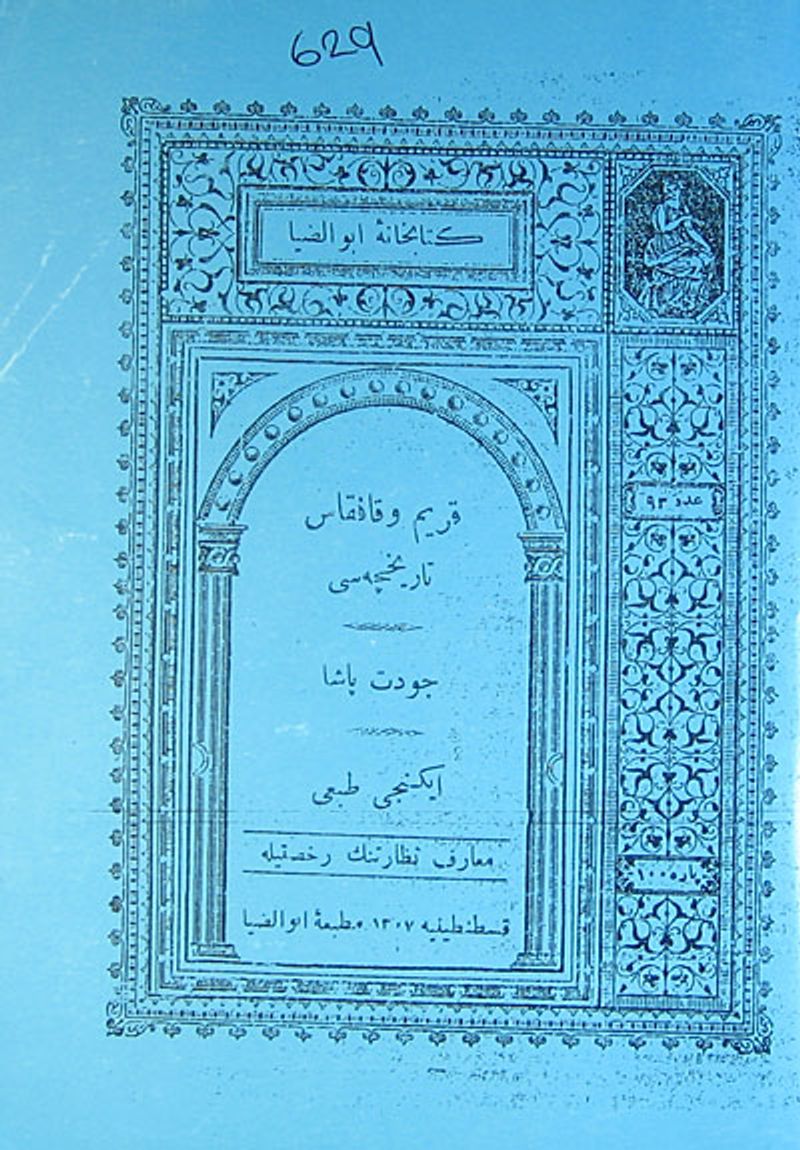 629
كتابخانهٔ ابوالضيا
عدد ٩٣
قريم وقافقاس
تاريخچه‌سى
جودت پاشا
ايكنجى طبعى
معارف نظارتنك رخصتيله
پاره ١٠٠
قسطنطينيه ١٣٠٧ مطبعهٔ ابوالضيا